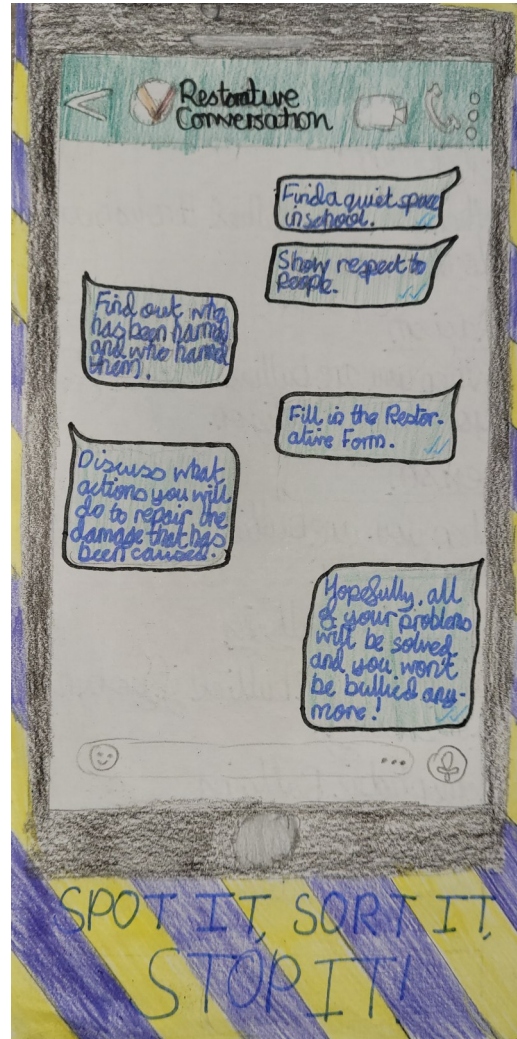 Restorative
Conversation
Find a quiet space
in school.
Show respect to
People.
Find out who
has been harmed
and who harmed
them.
Fill in the Restor-
ative Form.
Discuss what
actions you will
do to repair the
damage that has
been caused.
Hopefully, all
of your problems
will be solved
and you won't
be bullied any-
more!
SPOT IT, SORT IT,
STOP IT!